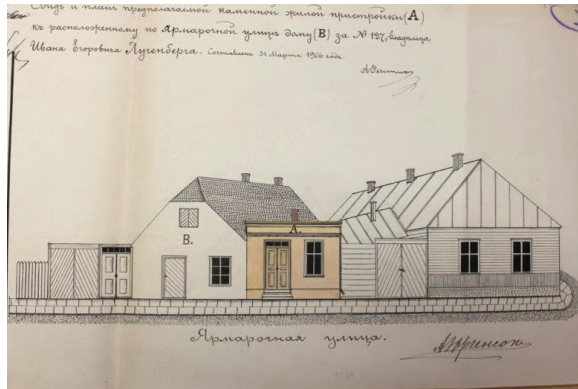 планъ предполагаемой каменной жилой пристройки (А)
къ расположенному по Ярмарочной улицѣ дому (В) за № 127, владѣльца
Ивана Егоровича Лугенберга. Составленъ 31 Марта 1906 года
В.
А.
Ярмарочная улица.